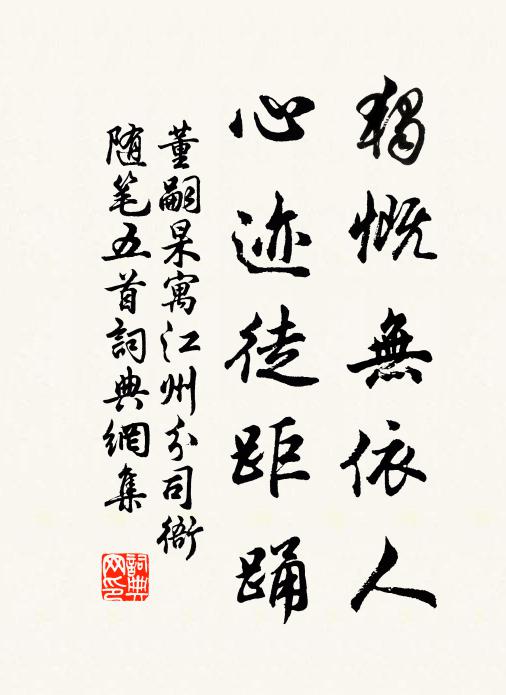 獨慨無依人
心迹徒距踊
董嗣杲寓江州分司衙
随笔五首詞典網集
詞典
网印